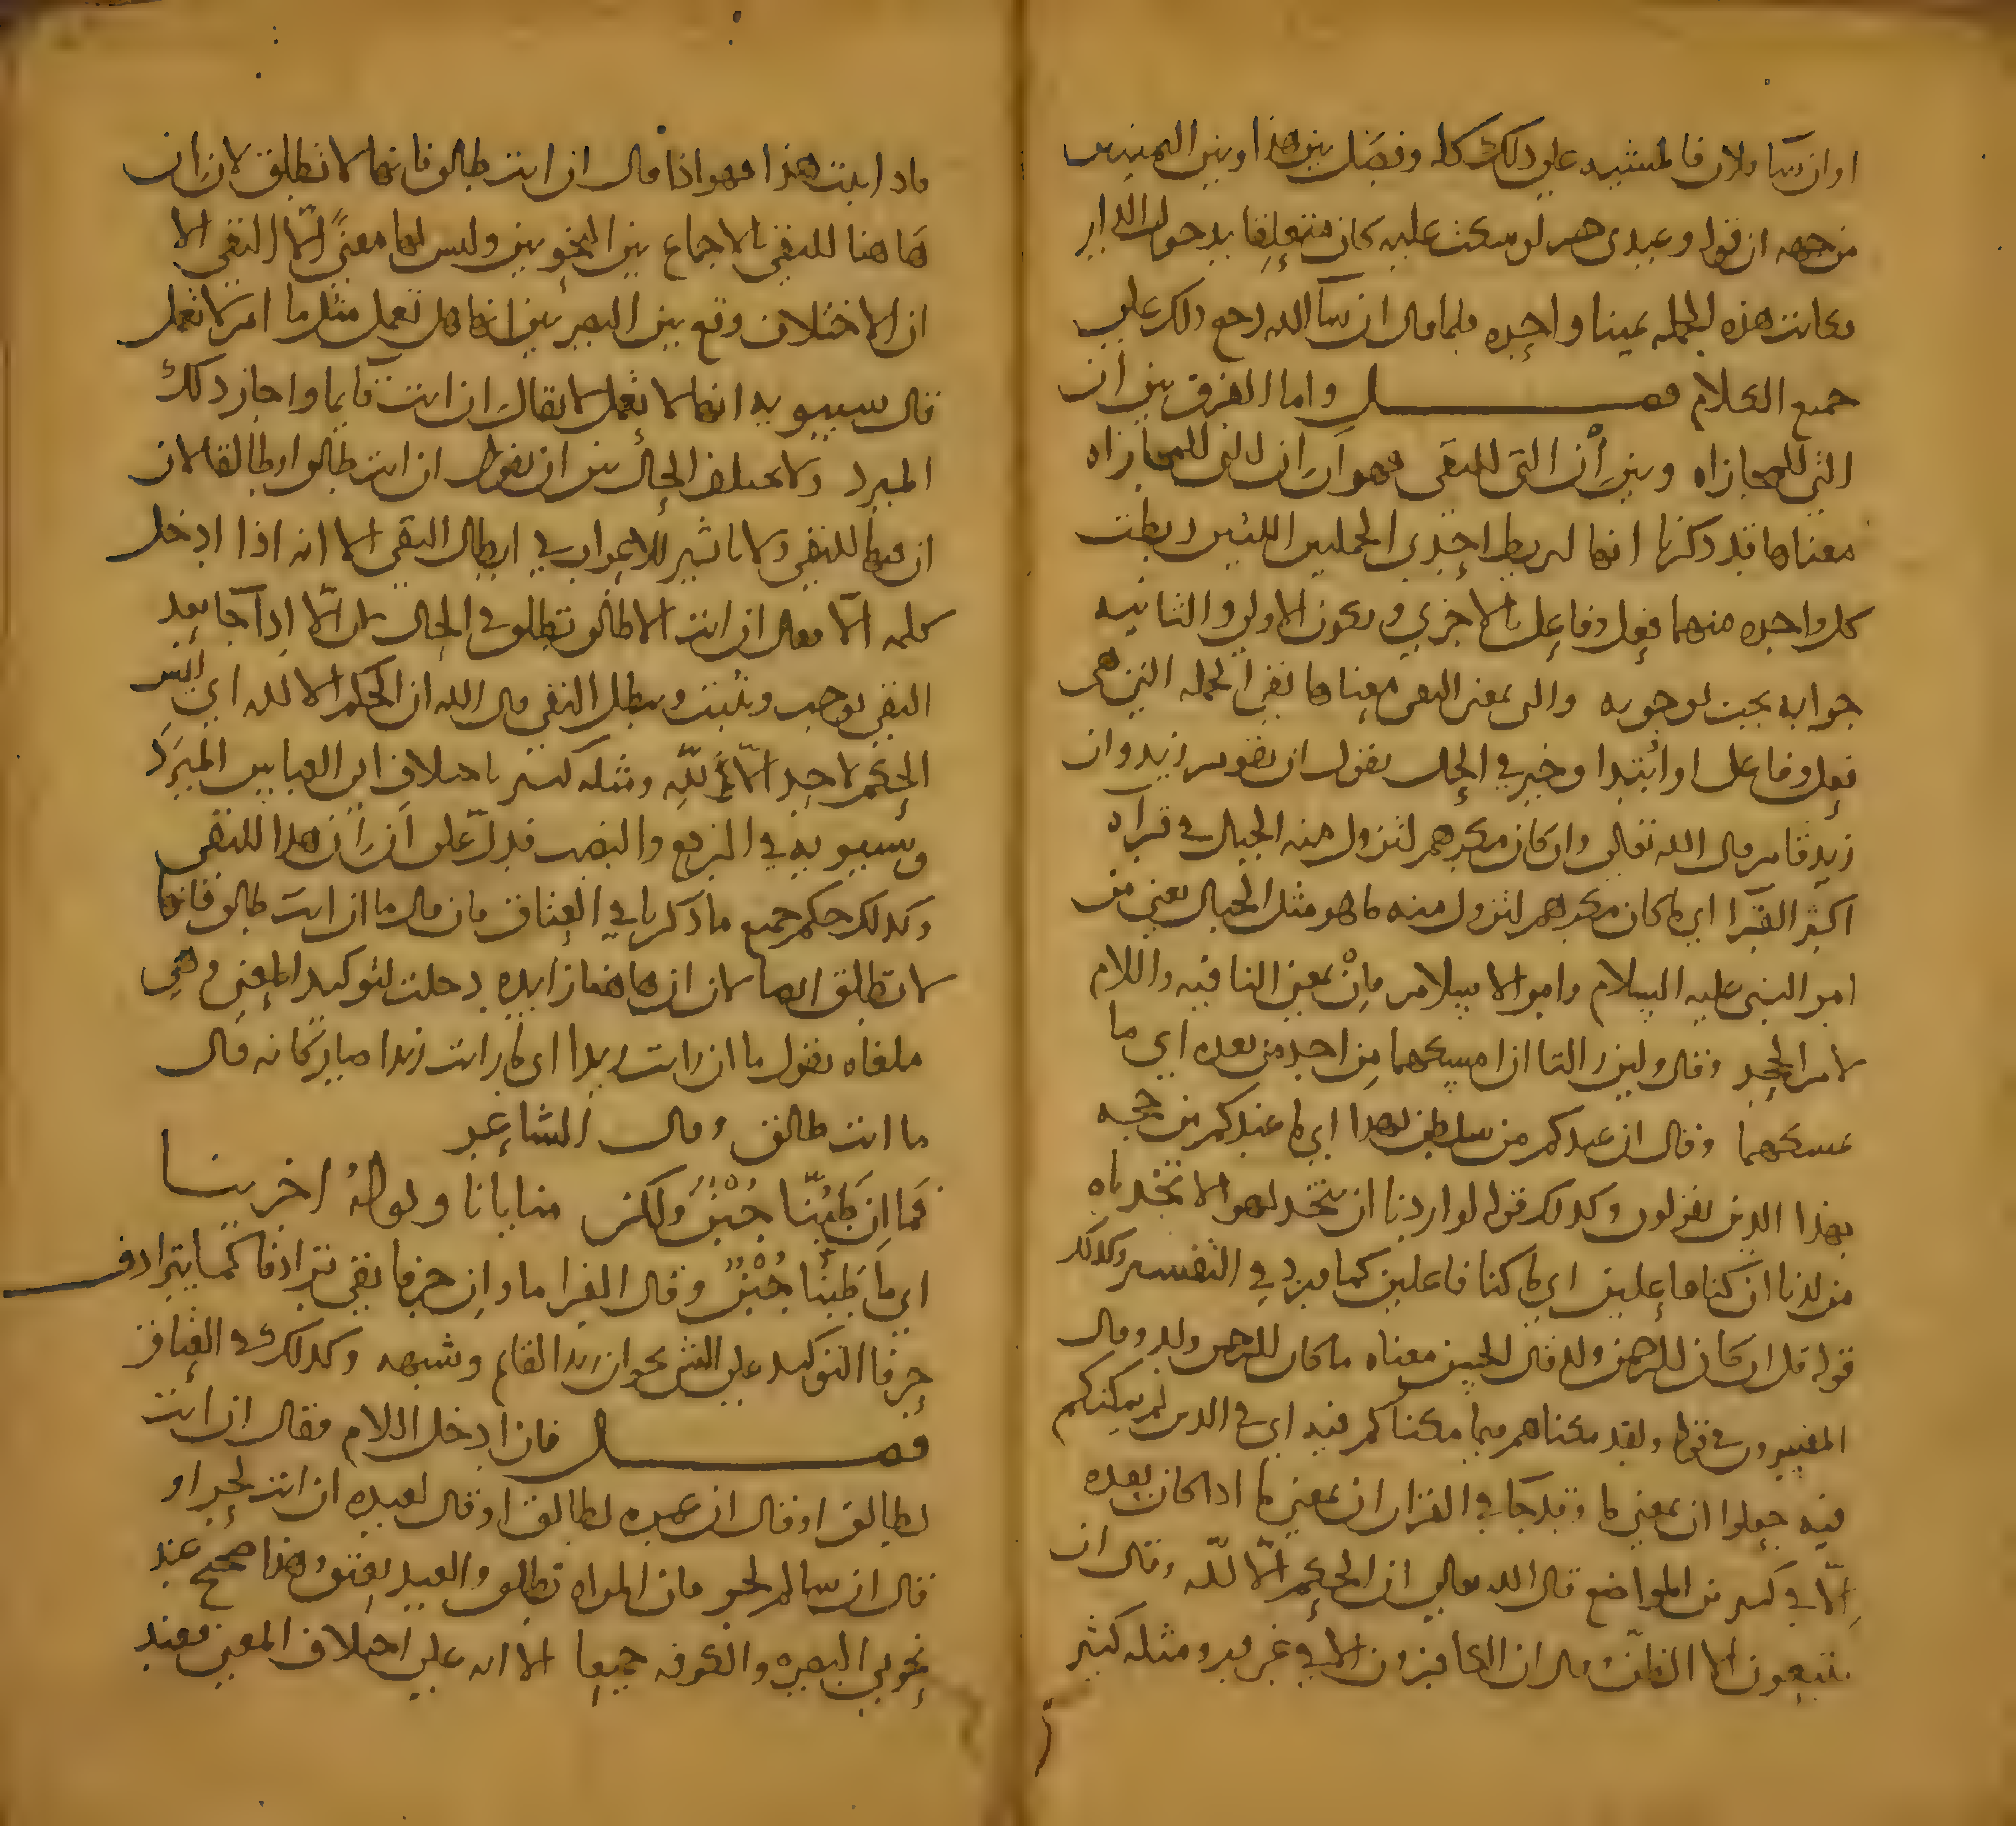 او ان شا فلان فالمشيه علي ذلك كله وفصل بين هذا وبين اليمينين
من جهه ان قوله وعبدي حر لو سكت عليه كان متعلقا بدخول الدار
وكانت هذه الجمله يمينا واحده فلما قال ان شا الله رجع ذلك علي
جميع الكلام فصل واما الفرق بين ان
التي للمجازاه وبين أن التي للنفي فهو ان ان التي للمجازاه
معناها قد ذكرنا انها لربط احدي الجملتين اللتين ربطت
كل واحده منهما فعل وفاعل بالاخري وتكون الاولي والثانيه
جوابه يجب لوجوبه والتي بمعني النفي معناها نفي الجمله التي هي
فعل وفاعل او ابتدا وخبر في الحال تقول ان تقوم زيد وان
زيد قايم قال الله تعالي وان كان مكرهم لتزول منه الجبال في قرآه
اكثر القرا اي ما كان مكرهم لتزول منه ما هو مثل الجبال يعني من
امر النبي عليه السلام وامر الاسلام فان بمعني النافيه واللام
لام الجحد وقال ولين زالتا ان امسكهما من احد من بعده اي ما
يمسكهما وقال ان عندكم من سلطن بهذا اي ما عندكم من حجه
بهذا الذين تقولون وكذلك قوله لو اردنا ان نتخذ لهوا لاتخذناه
من لدنا ان كنا فاعلين اي ما كنا فاعلين كما في التفسير وكذلك
قوله قل ان كان للرحمن ولد قال الحسن معناه ما كان للرحمن ولد وقال
المفسرون في قوله ولقد مكناهم فيما ان مكناكم فيه اي في الذي لم نمكنكم
فيه جعلوا ان بمعني ما وقد جا في القران ان بمعني ما اذا كان بعده
إلّا في كثير من المواضع قال الله تعالي ان الحكم الّا لله وقال ان
تتبعون الا الظن وقال ان الكافرون الا في غرور ومثله كثير
فاذا ثبت هذا فهو اذا قال ان انت طالق فانها لا تطلق لان ان
هاهنا للنفي بالاجماع بين النحويين وليس لها معنيً الّا النفي الا
ان الاختلاف وقع بين البصريين انها هل تعمل مثل ما ام لا تعمل
قال سيبويه انها لا تعمل لا يقال ان انت قايما واجاز ذلك
المبرد ولا يختلف الحال بين ان يقول ان انت طالق او طالقا لان
ان فيها للنفي ولا تاثير للاعراب في ابطال النفي الا انه اذا ادخل
كلمه الّا فقال ان انت الا طالق تطلق في الحال لان الّا اذا جا بعد
النفي توجب وتثبت وتبطل النفي قال الله ان الحكم الا لله اي ليس
الحكم لاحد الّا لله ومثله كثير باختلاف ابي العباس المبرد
وسيبويه في الرفع والنصب فدلّ علي ان ان هذا للنفي
وكذلك حكم جميع ما ذكرنا في العتاق فان قال ما ان انت طالق فانها
لا تطلق ايضا لان ان هاهنا زايده دخلت لتوكيد المعني وهي
ملغاه تقول ما ان رايت زيدا اي ما رايت زيدا صار كانه قال
ما انت طالق وقال الشاعر
فما ان طبّنا جُبْنٌ ولكن منايانا ودولة اخرينا
اي ما طبنا جُبْنٌ وقال الفرا ما وان حرفا نفي ترادفا كما يترادف
حرفا التوكيد علي الشي نحو ان زيدا لقايم وشبهه وكذلك في العتاق
فصل فان ادخل اللام فقال ان انت
لطالق او قال ان عمره لطالق او قال لعبده ان انت لحر او
قال ان سالم لحر فان المراه تطلق والعبد يعتق وهذا صحيح عند
نحويي البصره والكوفه جميعا الا انه علي اختلاف المعني فعند